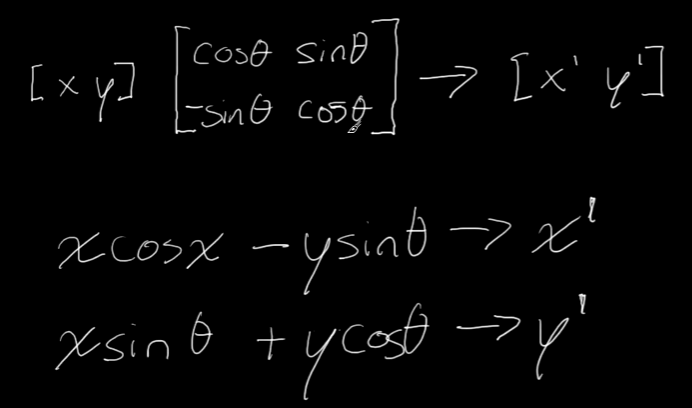 [x y] [cosθ sinθ
-sinθ cosθ] → [x' y']
xcosx - ysinθ → x'
xsinθ + ycosθ → y'